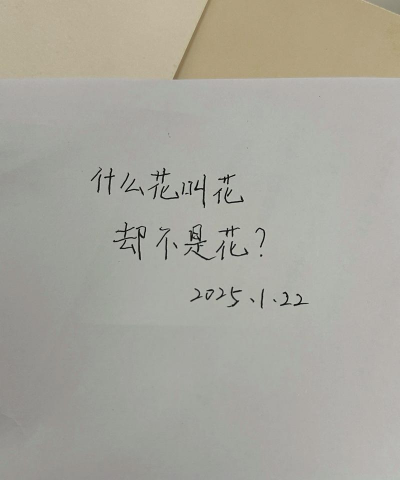 什么花叫花
却不是花?
2025.1.22